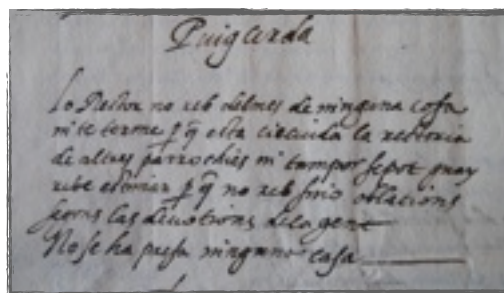 Puigcerda
Lo Rector no reb delmes de ninguna cosa
ni te terme p q esta circuida la rectoria
de altres parrochies ni tampoc se pot quay
rebe estimar p q no reb sino oblacions
segons las devotions de la gent
No se ha presa ninguna casa